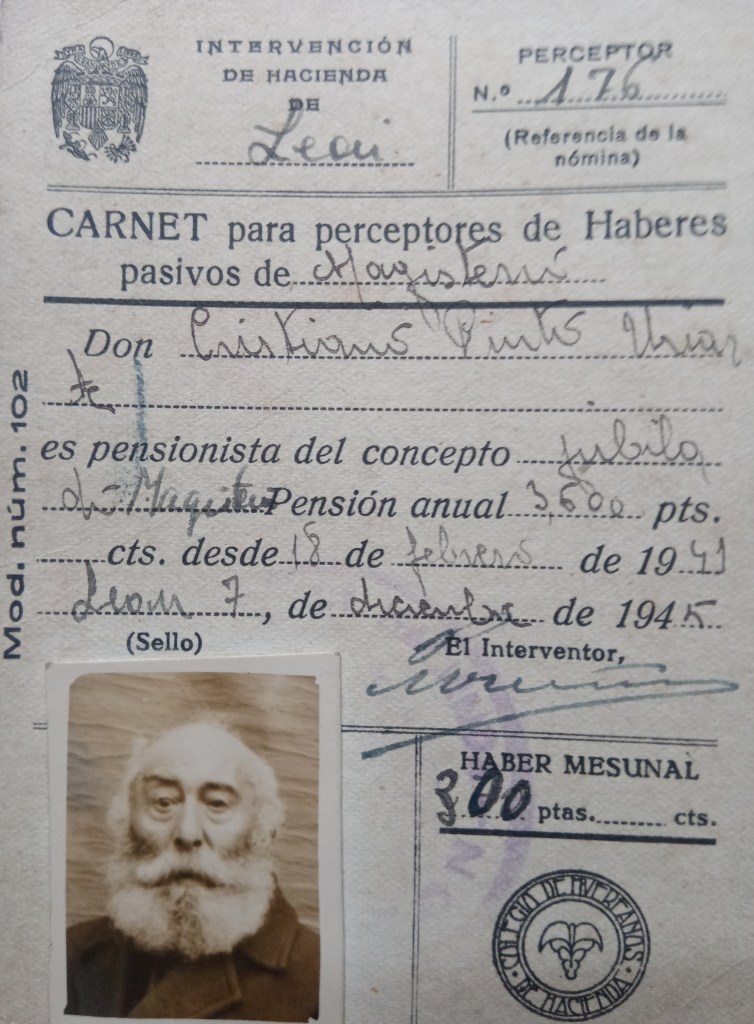 INTERVENCIÓN
DE HACIENDA
DE
León
PERCEPTOR
N.º 176
(Referencia de la
nómina)
CARNET para perceptores de Haberes
pasivos de Magisterio
Don Cristiano Pinto Uriar
te
es pensionista del concepto jubila
do Magisterio Pensión anual 3,600 pts.
cts. desde 18 de febrero de 1941
León 7, de diciembre de 1945
(Sello)
El Interventor,
HABER MESUNAL
300 ptas. cts.
COLEGIO DE HUERFANOS
DE HACIENDA
Mod. núm. 102